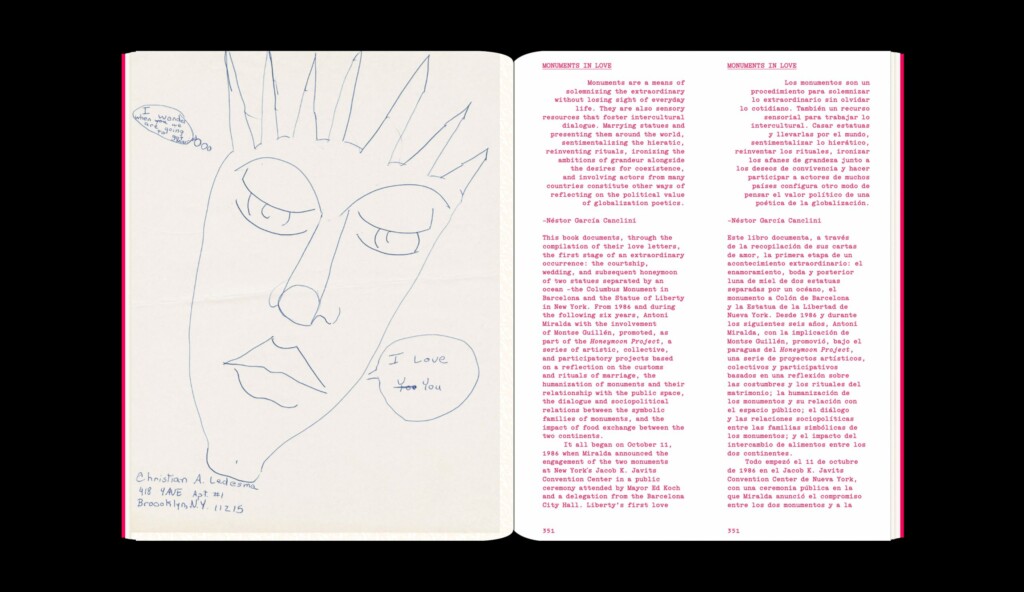 I wonder
when we
are going
I Love
Yoo You
Christian A. Ledesma
418 4AVE Apt #1
Broooklyn, N.Y. 11215
MONUMENTS IN LOVE
Monuments are a means of
solemnizing the extraordinary
without losing sight of everyday
life. They are also sensory
resources that foster intercultural
dialogue. Marrying statues and
presenting them around the world,
sentimentalizing the hieratic,
reinventing rituals, ironizing the
ambitions of grandeur alongside
the desires for coexistence,
and involving actors from many
countries constitute other ways of
reflecting on the political value
of globalization poetics.
-Néstor García Canclini
This book documents, through the
compilation of their love letters,
the first stage of an extraordinary
occurrence: the courtship,
wedding, and subsequent honeymoon
of two statues separated by an
ocean -the Columbus Monument in
Barcelona and the Statue of Liberty
in New York. From 1986 and during
the following six years, Antoni
Miralda with the involvement
of Montse Guillén, promoted, as
part of the Honeymoon Project, a
series of artistic, collective,
and participatory projects based
on a reflection on the customs
and rituals of marriage, the
humanization of monuments and their
relationship with the public space,
the dialogue and sociopolitical
relations between the symbolic
families of monuments, and the
impact of food exchange between the
two continents.
It all began on October 11,
1986 when Miralda announced the
engagement of the two monuments
at New York's Jacob K. Javits
Convention Center in a public
ceremony attended by Mayor Ed Koch
and a delegation from the Barcelona
City Hall. Liberty's first love
351
MONUMENTS IN LOVE
Los monumentos son un
procedimiento para solemnizar
lo extraordinario sin olvidar
lo cotidiano. También un recurso
sensorial para trabajar lo
intercultural. Casar estatuas
y llevarlas por el mundo,
sentimentalizar lo hierático,
reinventar los rituales, ironizar
los afanes de grandeza junto a
los deseos de convivencia y hacer
participar a actores de muchos
países configura otro modo de
pensar el valor político de una
poética de la globalización.
-Néstor García Canclini
Este libro documenta, a través
de la recopilación de sus cartas
de amor, la primera etapa de un
acontecimiento extraordinario: el
enamoramiento, boda y posterior
luna de miel de dos estatuas
separadas por un océano, el
monumento a Colón de Barcelona
y la Estatua de la Libertad de
Nueva York. Desde 1986 y durante
los siguientes seis años, Antoni
Miralda, con la implicación de
Montse Guillén, promovió, bajo el
paraguas del Honeymoon Project,
una serie de proyectos artísticos,
colectivos y participativos
basados en una reflexión sobre
las costumbres y los rituales del
matrimonio; la humanización de
los monumentos y su relación con
el espacio público; el diálogo
y las relaciones sociopolíticas
entre las familias simbólicas de
los monumentos; y el impacto del
intercambio de alimentos entre los
dos continentes.
Todo empezó el 11 de octubre
de 1986 en el Jacob K. Javits
Convention Center de Nueva York,
con una ceremonia pública en la
que Miralda anunció el compromiso
entre los dos monumentos y a la
351